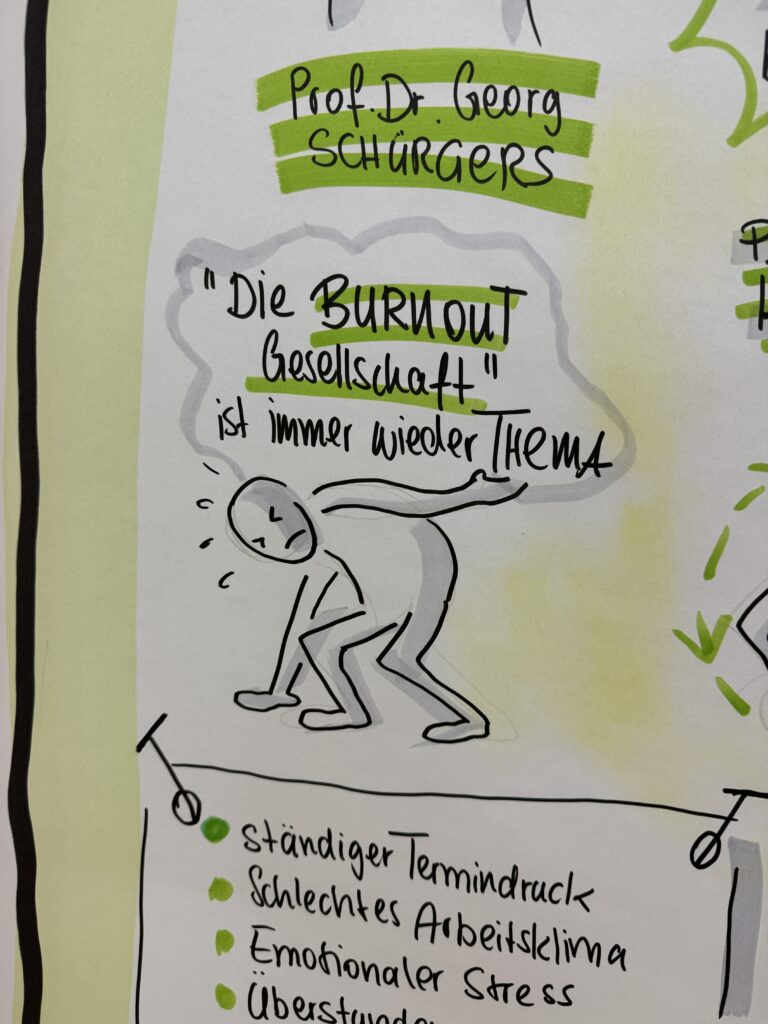 Prof. Dr. Georg
SCHÜRGERS
"Die BURNOUT
Gesellschaft"
ist immer wieder THEMA
ständiger Termindruck
Schlechtes Arbeitsklima
Emotionaler Stress